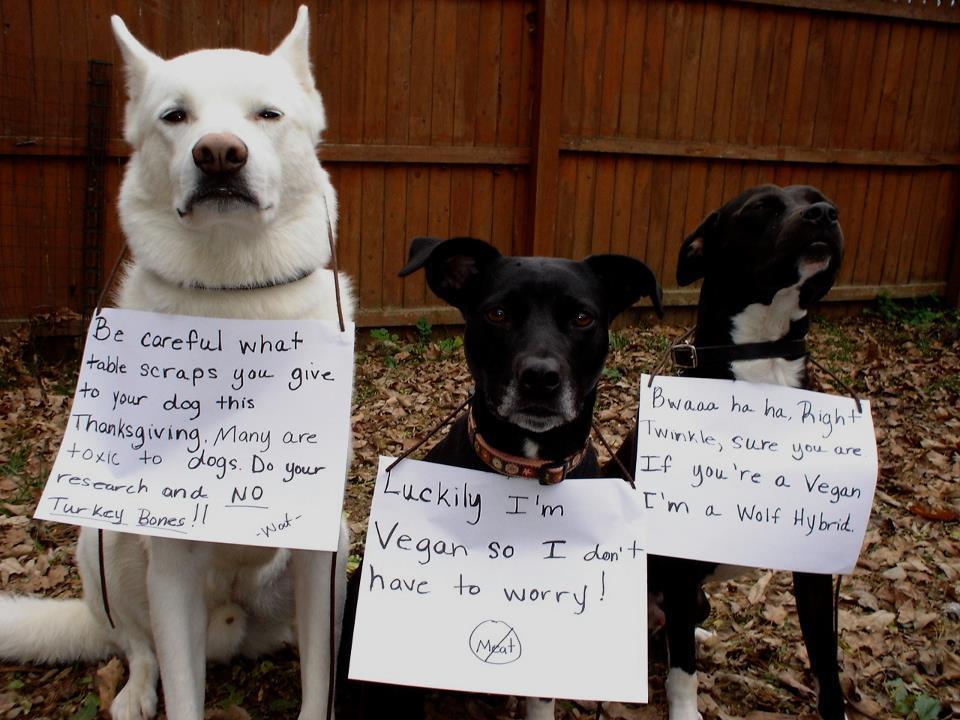 Be careful what
table scraps you give
to your dog this
Thanksgiving. Many are
toxic to dogs. Do your
research and NO
Turkey Bones!!
-Wat-
Luckily I'm
Vegan so I don't
have to worry!
Meat
Bwaaa ha ha, Right
Twinkle, sure you are
If you're a Vegan
I'm a Wolf Hybrid.